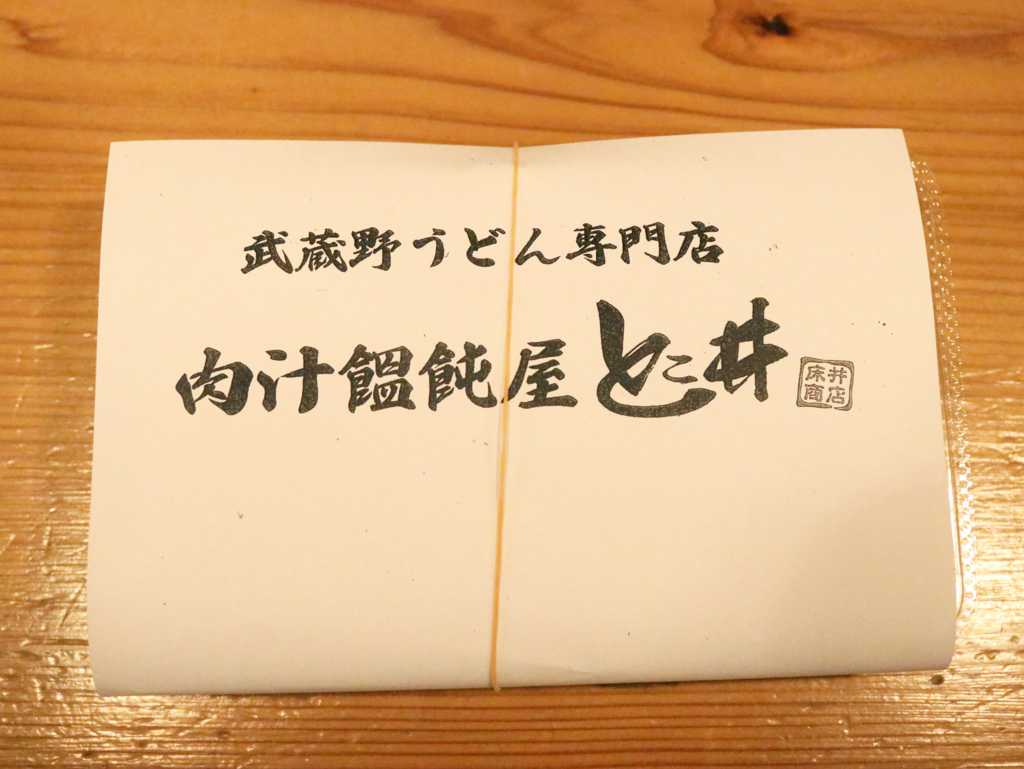 武蔵野うどん専門店
肉汁饂飩屋とこ井
床井
商店